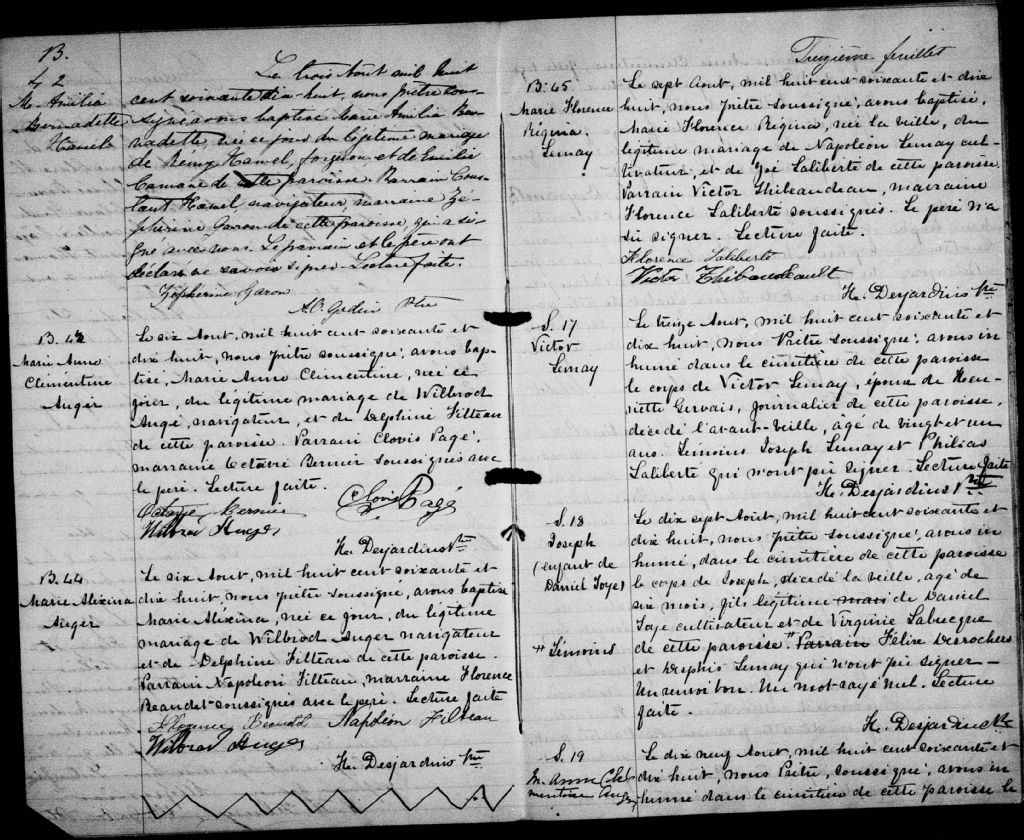 B.
42
M. Amilia
Bernadette
Hamel
Le trois Aout mil huit
cent soixante dix-huit, nous prêtre sous-
signé avons baptisé Marie Amilia Ber-
nadette, née ce jour du légitime mariage
de Remy Hamel, forgeron et de Emilie
de cette paroisse. Parrain Cons-
tant Hamel navigateur, marraine Ze-
pherine Garon de cette paroisse qui a si-
gné avec nous. Le parrain et le père ont
déclaré ne savoir signer. Lecture faite.
Zepherine Garon
Ptre
B. 43
Marie Anne
Clementine
Auger
Le six Aout, mil huit cent soixante et
dix huit, nous prêtre soussigné, avons bap-
tisé, Marie Anne Clémentine, née ce
jour, du légitime mariage de Wilbrod
Augé, navigateur, et de Delphine Filteau
de cette paroisse. Parrain Clovis Pagé,
marraine Octavie Bernier soussignés avec
le père. Lecture faite.
Octavie Bernier
Clovis Pagé
Wilbrod Auger
H. Desjardins Ptre
B. 44
Marie Alexina
Auger
Le six Aout, mil huit cent soixante et
dix huit, nous prêtre soussigné, avons baptisé
Marie Alexina, née ce jour, du légitime
mariage de Wilbrod Auger navigateur
et de Delphine Filteau de cette paroisse.
Parrain Napoleon Filteau, marraine Florence
Beaudet soussignés avec le père. Lecture faite
Florence Beaudet Napoléon Filteau
Wilbrod Auger
H. Desjardins Ptre
Treizième feuillet
B. 45
Marie Florence
Régina
Lemay
Le sept Aout, mil huit cent soixante et dix
huit, nous prêtre soussigné, avons baptisé,
Marie Florence Régina, née la veille, du
légitime mariage de Napoleon Lemay cul-
tivateur, et de Zoé Laliberté de cette paroisse
Parrain Victor Thibeaudeau, marraine
Florence Laliberté soussignés. Le père n'a
su signer. Lecture faite.
Florence Laliberté
Victor Thibaudeault
H. Desjardins Ptre
S. 17
Victor
Lemay
Le treize Aout, mil huit cent soixante et
dix huit, nous Prêtre soussigné, avons in
humé dans le cimetière de cette paroisse
le corps de Victor Lemay, époux de Hen-
riette Gervais, journalier de cette paroisse,
décédé l'avant-veille, age de vingt et un
ans. Témoins Joseph Lemay et Philias
Laliberté qui n'ont pu signer. Lecture faite
H. Desjardins Ptre
S. 18
Joseph
(enfant de
Daniel Soye)
# Témoins
Le dix sept Aout, mil huit cent soixante et
dix huit, nous prêtre soussigné, avons in
humé, dans le cimetière de cette paroisse
le corps de Joseph, décédé la veille, agé de
six mois, fils légitime mari de Daniel
Soye cultivateur et de Virginie Labecque
de cette paroisse # Parrain Félix Desrochers
et Delphis Lemay qui n'ont pu signer –
Un renvoi bon. Un mot rayé nul. Lecture
faite.
H. Desjardins Ptre
S. 19
M. Anne Clé
mentine Auger
Le dix neuf Aout, mil huit cent soixante et
dix huit, nous Prêtre, soussigné, avons in
humé dans le cimetière de cette paroisse le